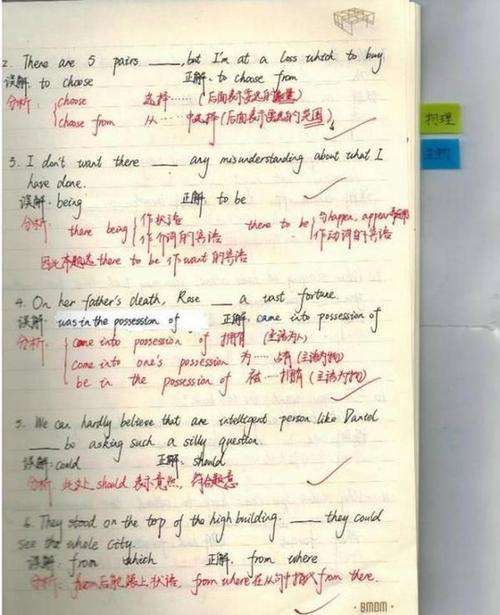 2. There are 5 pairs ____, but I'm at a loss which to buy.
误解: to choose 正解: to choose from
分析: choose 选择……(后面表示选出的
choose from 从……中选择(后面表示选出的范围)
3. I don't want there ____ any misunderstanding about what I
have done.
误解: being 正解: to be
分析: there being 作状语 there to be 与happen, appear
作介词的宾语 作动词的宾语
因此本题选there to be 作want的宾语
4. On her father's death, Rose ____ a vast fortune.
误解: was in the possession of 正解: came into possession of
分析: come into possession of 拥有 (主语为人)
come into one's possession 为……占有 (主语为物)
be in the possession of 被…拥有 (主语为物)
5. We can hardly believe that are intelligent person like Daniel
____ be asking such a silly question.
误解: could 正解: should
分析 此处should表示竟然, 符合题意
6. They stood on the top of the high building. ____ they could
see the whole city.
误解: from which 正解: from where
分析: from后 状语, from where在从句中指代from there.
物理
生物
·BMDM·